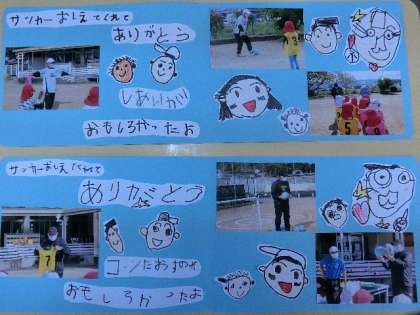 サッカーおしえてくれて
ありがとう
しあいが
おもしろかったよ
サッカーおしえてくれて
ありがとう
おもしろかったよ